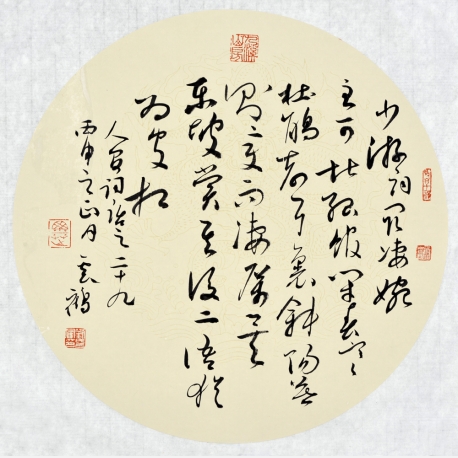 少游词最凄婉
至可堪孤馆闭春寒
杜鹃声裏斜阳暮
则变而凄厉矣
东坡赏其后二语犹
为皮相
人间词话之二十九
丙申之正月云鹤